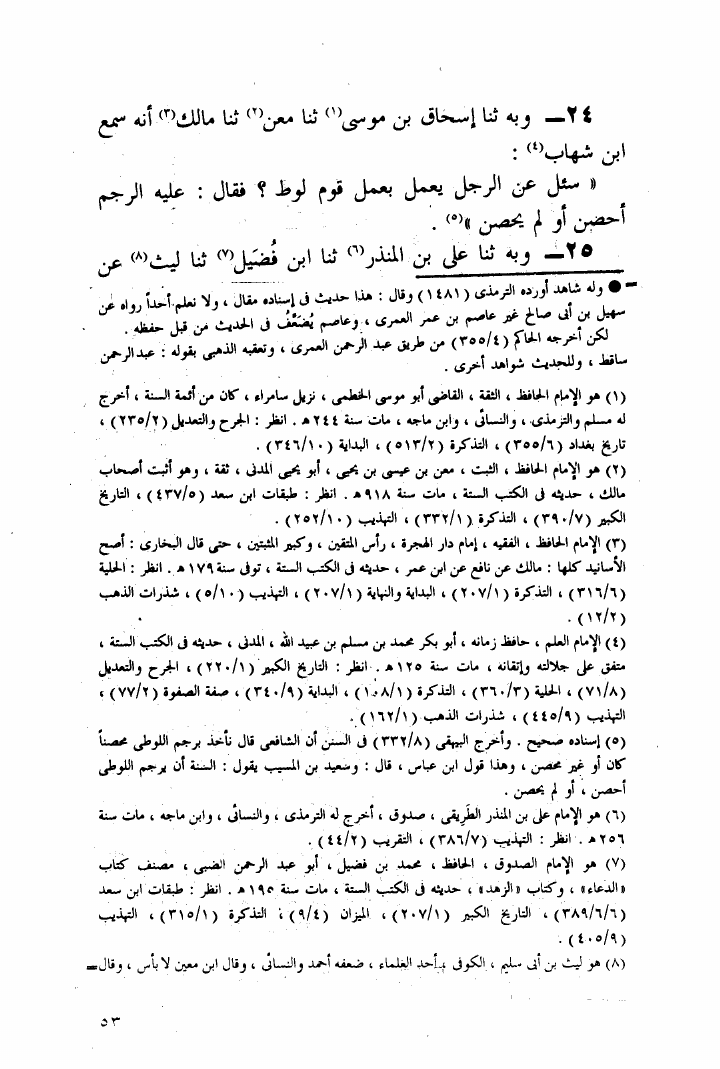 ٢٤ــ وبه ثنا إسحاق بن موسى(١) ثنا معن(٢) ثنا مالك(٣) أنه سمع
ابن شهاب(٤) :
« سئل عن الرجل يعمل بعمل قوم لوط ؟ فقال : عليه الرجم
أحصن أو لم يحصن »(٥) .
٢٥ــ وبه ثنا على بن المنذر(٦) ثنا ابن فُضَيل(٧) ثنا ليث(٨) عن
= ● وله شاهد أورده الترمذى (١٤٨١) وقال : هذا حديث فى إسناده مقال ، ولا نعلم أحداً رواه عن
سهيل بن أبى صالح غير عاصم بن عمر العمرى ، وعاصم يُضَعَّفُ فى الحديث من قبل حفظه .
لكن أخرجه الحاكم (٣٥٥/٤) من طريق عبد الرحمن العمرى ، وتعقبه الذهبى بقوله : عبدالرحمن
ساقط ، وللحديث شواهد أخرى .
(١) هو الإمام الحافظ ، الثقة ، القاضى أبو موسى الخطمى ، نزيل سامراء ، كان من أئمة السنة ، أخرج
له مسلم والترمذى ، والنسائى ، وابن ماجه ، مات سنة ٢٤٤هـ . انظر : الجرح والتعديل (٢٣٥/٢) ،
تاريخ بغداد (٣٥٥/٦) ، التذكرة (٥١٣/٢) ، البداية (٣٤٦/١٠) .
(٢) هو الإمام الحافظ ، الثبت ، معن بن عيسى بن يحيى ، أبو يحيى المدنى ، ثقة ، وهو أثبت أصحاب
مالك ، حديثه فى الكتب الستة ، مات سنة ٩١٨هـ . انظر : طبقات ابن سعد (٤٣٧/٥) ، التاريخ
الكبير (٣٩٠/٧) ، التذكرة (٣٣٢/١) ، التهذيب (٢٥٢/١٠) .
(٣) الإمام الحافظ ، الفقيه ، إمام دار الهجرة ، رأس المتقين ، وكبير المثبتين ، حتى قال البخارى : أصح
الأسانيد كلها : مالك عن نافع عن ابن عمر ، حديثه فى الكتب الستة ، توفى سنة ١٧٩هـ . انظر : الحلية
(٣١٦/٦) ، التذكرة (٢٠٧/١) ، البداية والنهاية (٢٠٧/١) ، التهذيب (٥/١٠) ، شذرات الذهب
(١٢/٢) .
(٤) الإمام العلم ، حافظ زمانه ، أبو بكر محمد بن مسلم بن عبيد الله ، المدنى ، حديثه فى الكتب الستة ،
متفق على جلالته وإتقانه ، مات سنة ١٢٥هـ . انظر : التاريخ الكبير (٢٢٠/١) ، الجرح والتعديل
(٧١/٨) ، الحلية (٣٦٠/٣) ، التذكرة (١٠٨/١) ، البداية (٣٤٠/٩) ، صفة الصفوة (٧٧/٢) ،
التهذيب (٤٤٥/٩) ، شذرات الذهب (١٦٢/١) .
(٥) إسناده صحيح . وأخرج البيهقى (٣٣٢/٨) فى السنن أن الشافعى قال نأخذ برجم اللوطى محصناً
كان أو غير محصن ، وهذا قول ابن عباس ، قال : وسعيد بن المسيب يقول : السنة أن يرجم اللوطى
أحصن ، أو لم يحصن .
(٦) هو الإمام على بن المنذر الطَرِيقى ، صدوق ، أخرج له الترمذى ، والنسائى ، وابن ماجه ، مات سنة
٢٥٦هـ . انظر : التهذيب (٣٨٦/٧) ، التقريب (٤٤/٢) .
(٧) هو الإمام الصدوق ، الحافظ ، محمد بن فضيل ، أبو عبد الرحمن الضبى ، مصنف كتاب
«الدعاء» ، وكتاب «الزهد» ، حديثه فى الكتب الستة ، مات سنة ١٩٥هـ . انظر : طبقات ابن سعد
(٣٨٩/٦/٦) ، التاريخ الكبير (٢٠٧/١) ، الميزان (٩/٤) ، التذكرة (٣١٥/١) ، التهذيب
(٤٠٥/٩) .
(٨) هو ليث بن أبى سليم ، الكوفى ، أحد العلماء ، ضعفه أحمد والنسائى ، وقال ابن معين لا بأس ، وقال=
٥٣